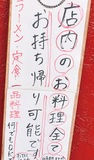 店内のお料理全て
お持ち帰り可能です
ラーメン・定食・一品料理